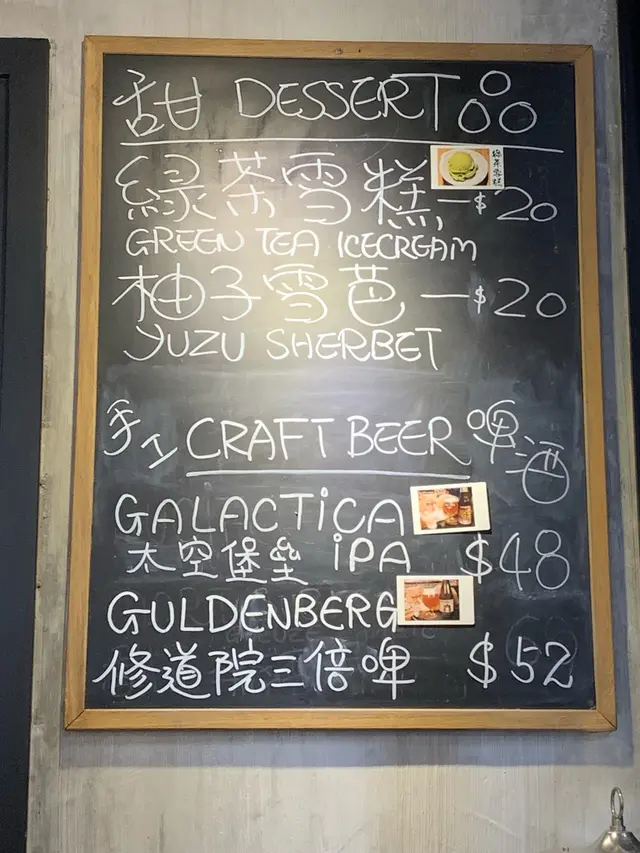 甜 DESSERT
綠茶雪糕 — $20
GREEN TEA ICECREAM
柚子雪芭 — $20
YUZU SHERBET
手工 CRAFT BEER 啤酒
GALACTICA
太空堡壘 IPA $48
GULDENBERG
修道院三倍啤 $52